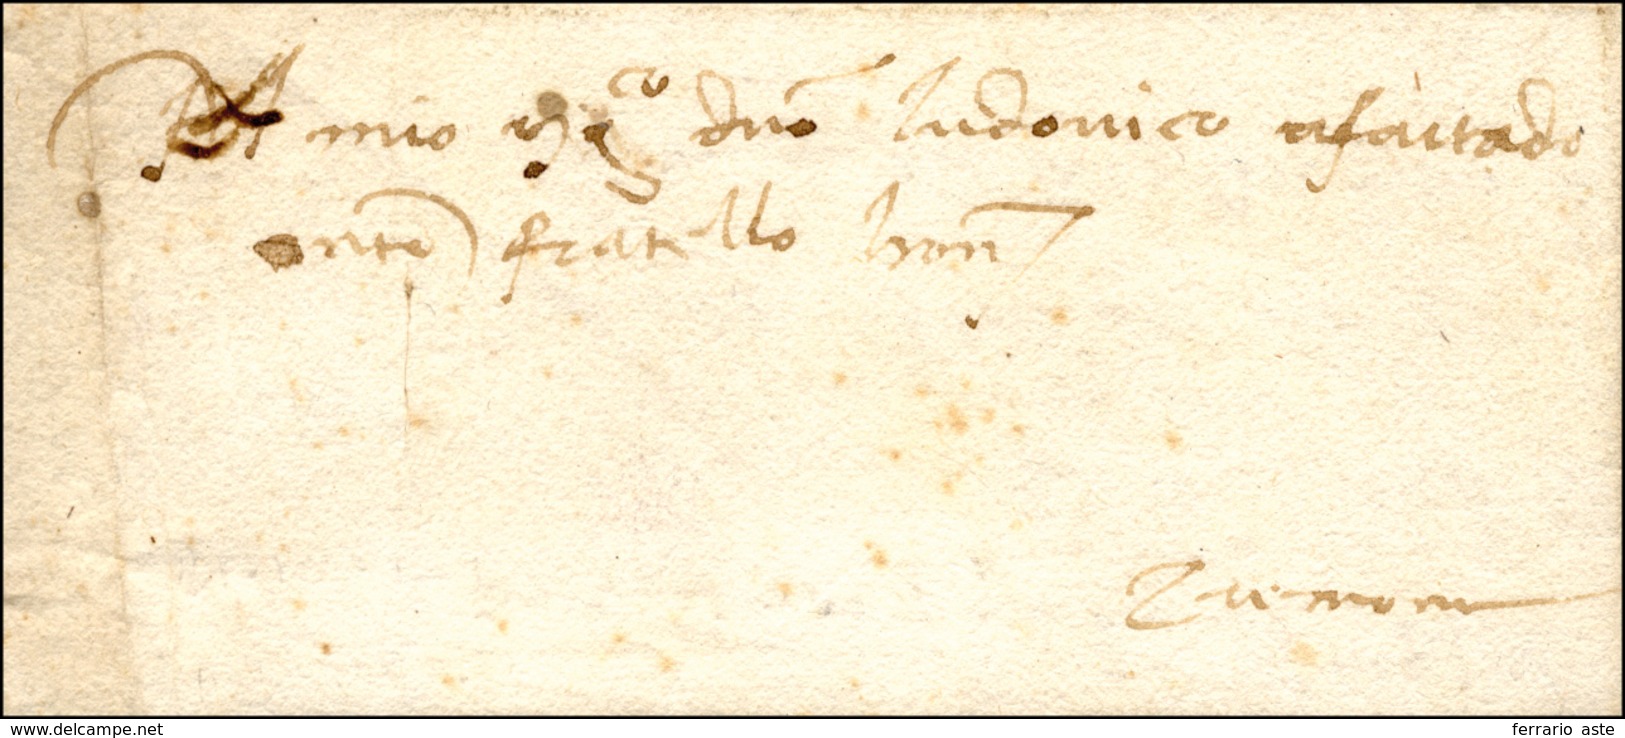 Al mio mag.co duo ludovico afaitado
fratello hon
Cremone
www.delcampe.net
ferrario aste